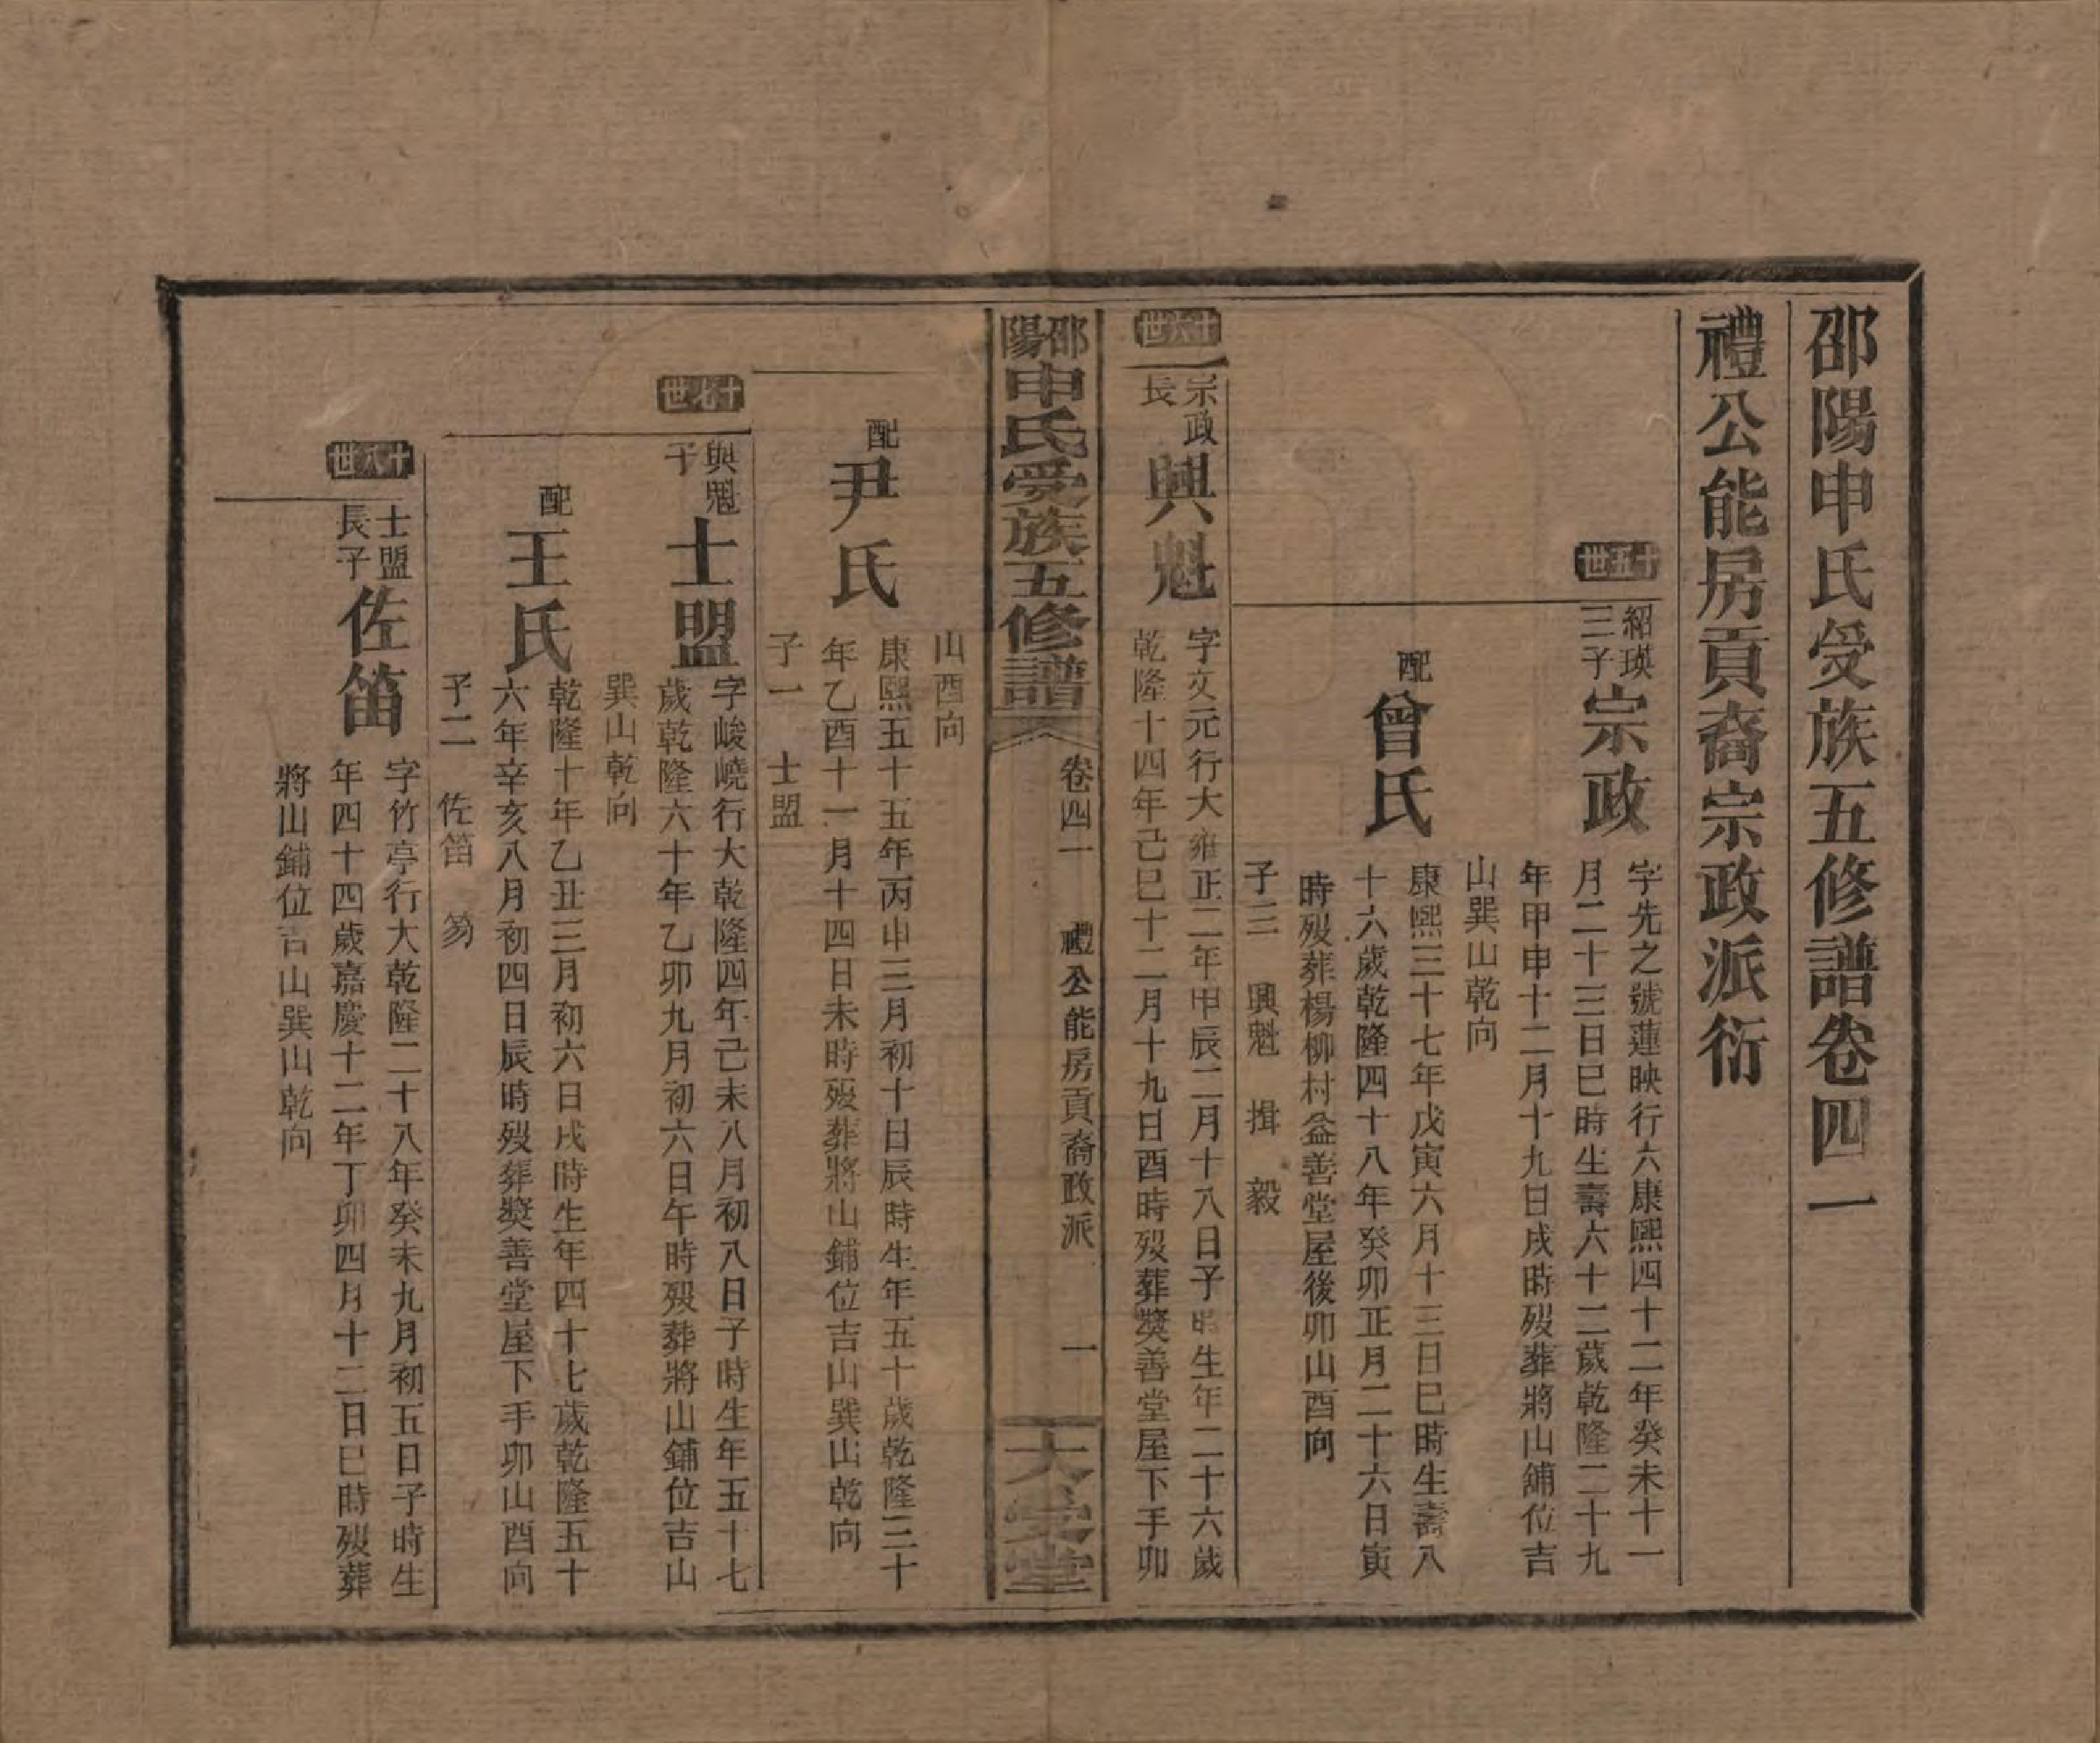 邵陽申氏受族五修譜卷四一
禮公能房貢裔宗政派衍
十五世
紹瑛
三子
宗政
字先之號蓮映行六康熙四十二年癸未十一
月二十三日巳時生壽六十二歲乾隆二十九
年甲申十二月十九日戌時歿葬將山鋪位吉
山巽山乾向
配
曾氏
康熙三十七年戊寅六月十三日巳時生壽八
十六歲乾隆四十八年癸卯正月二十六日寅
時歿葬楊柳村益善堂屋後卯山酉向
子三 興魁 揖 毅
十六世
宗政
長
興魁
字文元行大雍正二年甲辰二月十八日子時生年二十六歲
乾隆十四年己巳十二月十九日酉時歿葬獎善堂屋下手卯
邵陽申氏受族五修譜
卷四一 禮公能房貢裔政派 一
大受堂
山酉向
配
尹氏
康熙五十五年丙申三月初十日辰時生年五十歲乾隆三十
年乙酉十一月十四日未時歿葬將山鋪位吉山巽山乾向
子一 士盟
十七世
興魁
子
士盟
字峻嶢行大乾隆四年己未八月初八日子時生年五十七
歲乾隆六十年乙卯九月初六日午時歿葬將山鋪位吉山
巽山乾向
配
王氏
乾隆十年乙丑三月初六日戌時生年四十七歲乾隆五十
六年辛亥八月初四日辰時歿葬獎善堂屋下手卯山酉向
子二 佐笛 笏
十八世
士盟
長子
佐笛
字竹亭行大乾隆二十八年癸未九月初五日子時生
年四十四歲嘉慶十二年丁卯四月十二日巳時歿葬
將山鋪位吉山巽山乾向